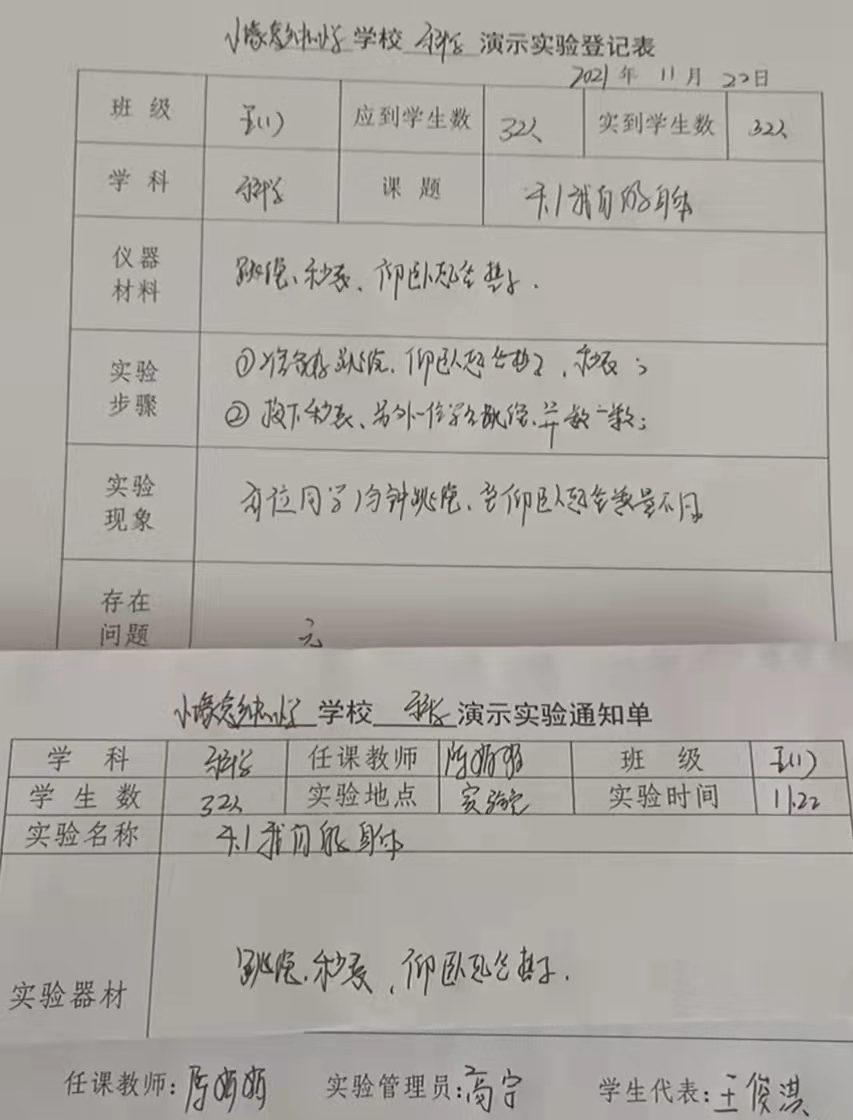 学校 科学 演示实验登记表
2021年 11月 22日
班级 五(1) 应到学生数 32人 实到学生数 32人
学科 科学 课题 4.1我们的身体
仪器材料 跳绳、秒表、仰卧起坐垫子.
实验步骤 ①准备好跳绳、仰卧起坐垫子,秒表;
②按下秒表、另外一位学生跳绳,并数一数;
实验现象 各位同学1分钟跳绳、仰卧起坐数量不同
存在问题 无
学校 科学 演示实验通知单
学科 科学 任课教师 陈娟娟 班级 五(1)
学生数 32人 实验地点 实验室 实验时间 11.22
实验名称 4.1我们的身体
实验器材 跳绳、秒表,仰卧起坐垫子.
任课教师:陈娟娟 实验管理员:高宁 学生代表:王俊淇